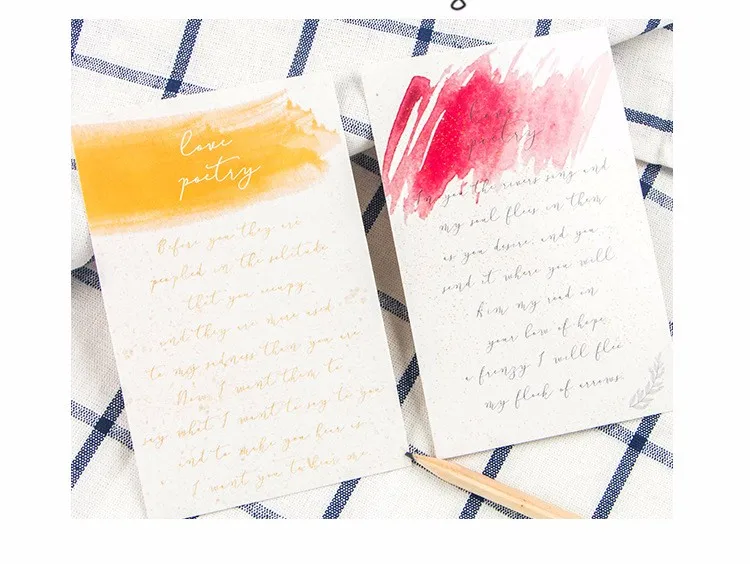 love
poetry
Before you they are
peopled in the solitude
that you occupy.
and they are more used
to my sadness than you are
Now I want them to
say what I want to say to you
and to make you hear as
I want you to hear me
love
poetry
In you the rivers sing and
my soul flees in them
as you desire and you
send it where you will
Aim my road in
your bow of hope
a frenzy I will flee
my flock of arrows.